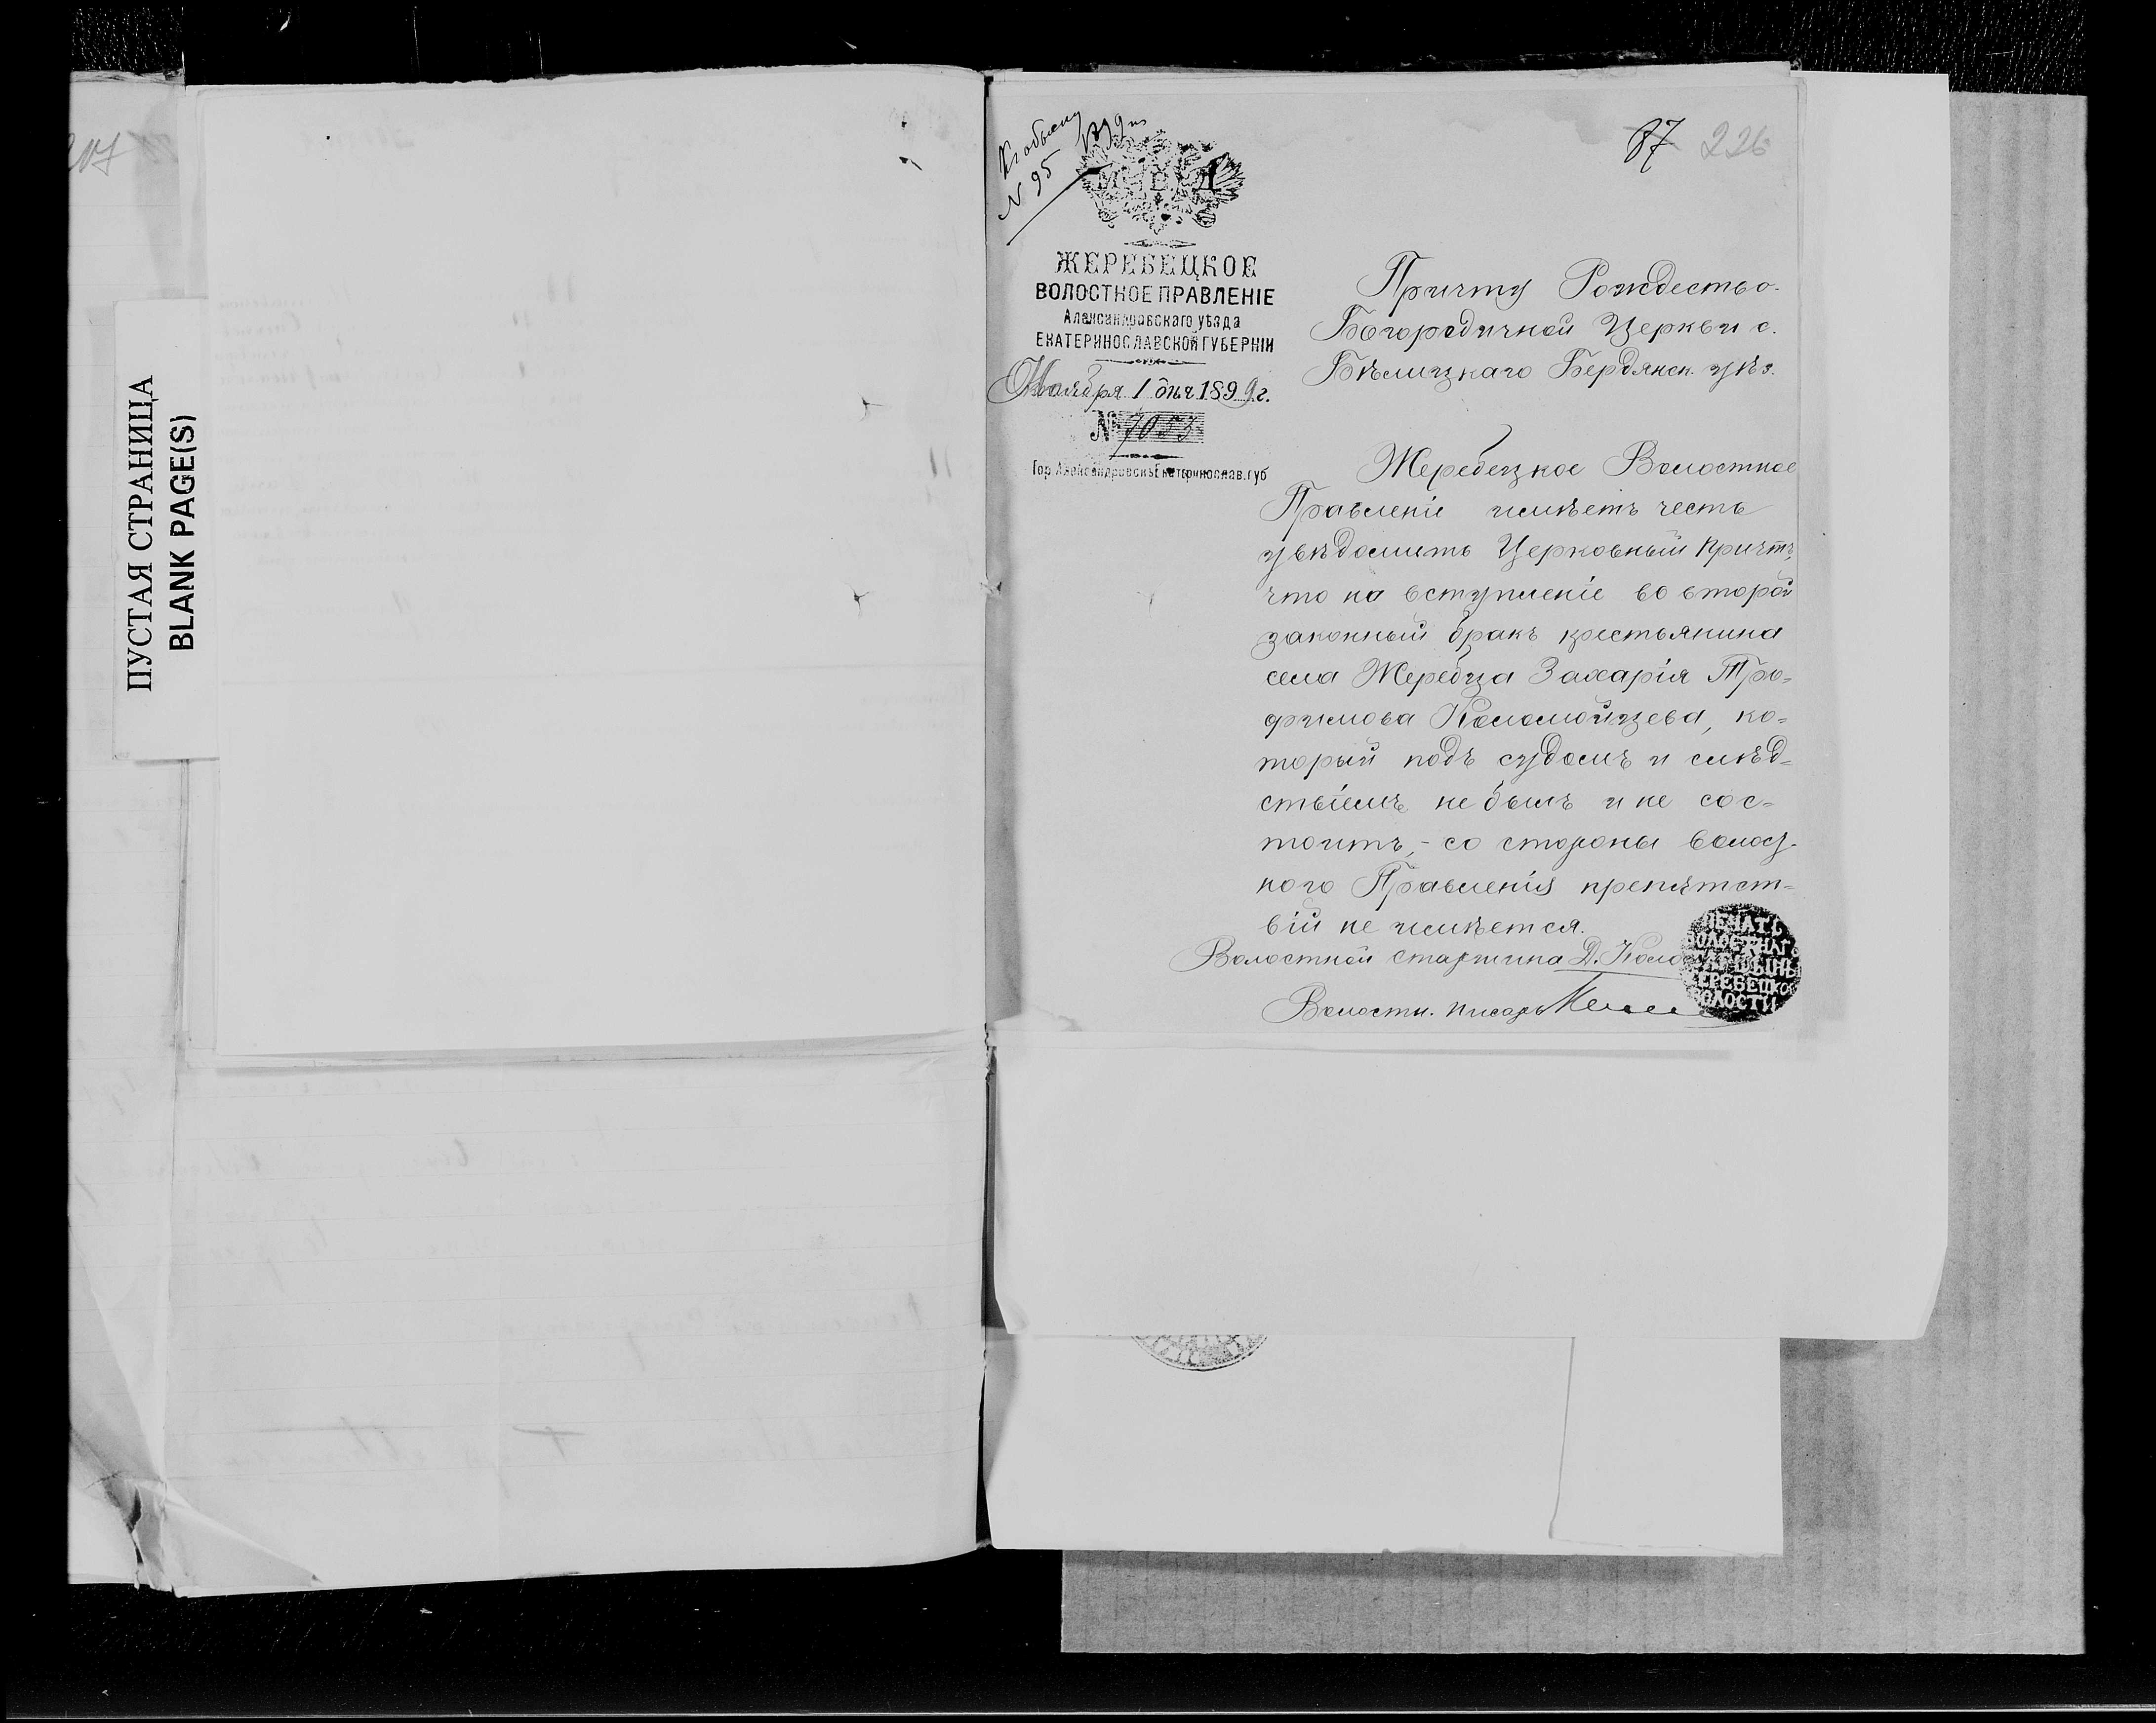 207
ПУСТАЯ СТРАНИЦА
BLANK PAGE(S)
Къ обыску
N 95
87 226
М. В. Д.
ЖЕРЕБЕЦКОЕ
ВОЛОСТНОЕ ПРАВЛЕНІЕ
Александровскаго уѣзда
ЕКАТЕРИНОСЛАВСКОЙ ГУБЕРНІИ
Ноября 1 дня 1899 г.
№ 7053
Гор. Александровскъ Екатеринослав. губ
Причту Рождество-
Богородичной Церкви с.
Бѣлицкаго Бердянск. уѣз.
Жеребецкое Волостное
Правленіе имѣетъ честь
увѣдомить Церковный Причтъ,
что на вступленіе во второй
законный бракъ крестьянина
села Жеребца Захарія Тро-
фимова Коломойцева, ко-
торый подъ судомъ и слѣд-
ствіемъ не былъ и не сос-
тоитъ, - со стороны волост-
ного Правленія препятст-
вій не имѣется.
Волостной Старшина Д. Коло
Волостн. Писарь
ПЕЧАТЬ
ВОЛОСТНАГО
СТАРШИНЫ
ЖЕРЕБЕЦКОЙ
ВОЛОСТИ